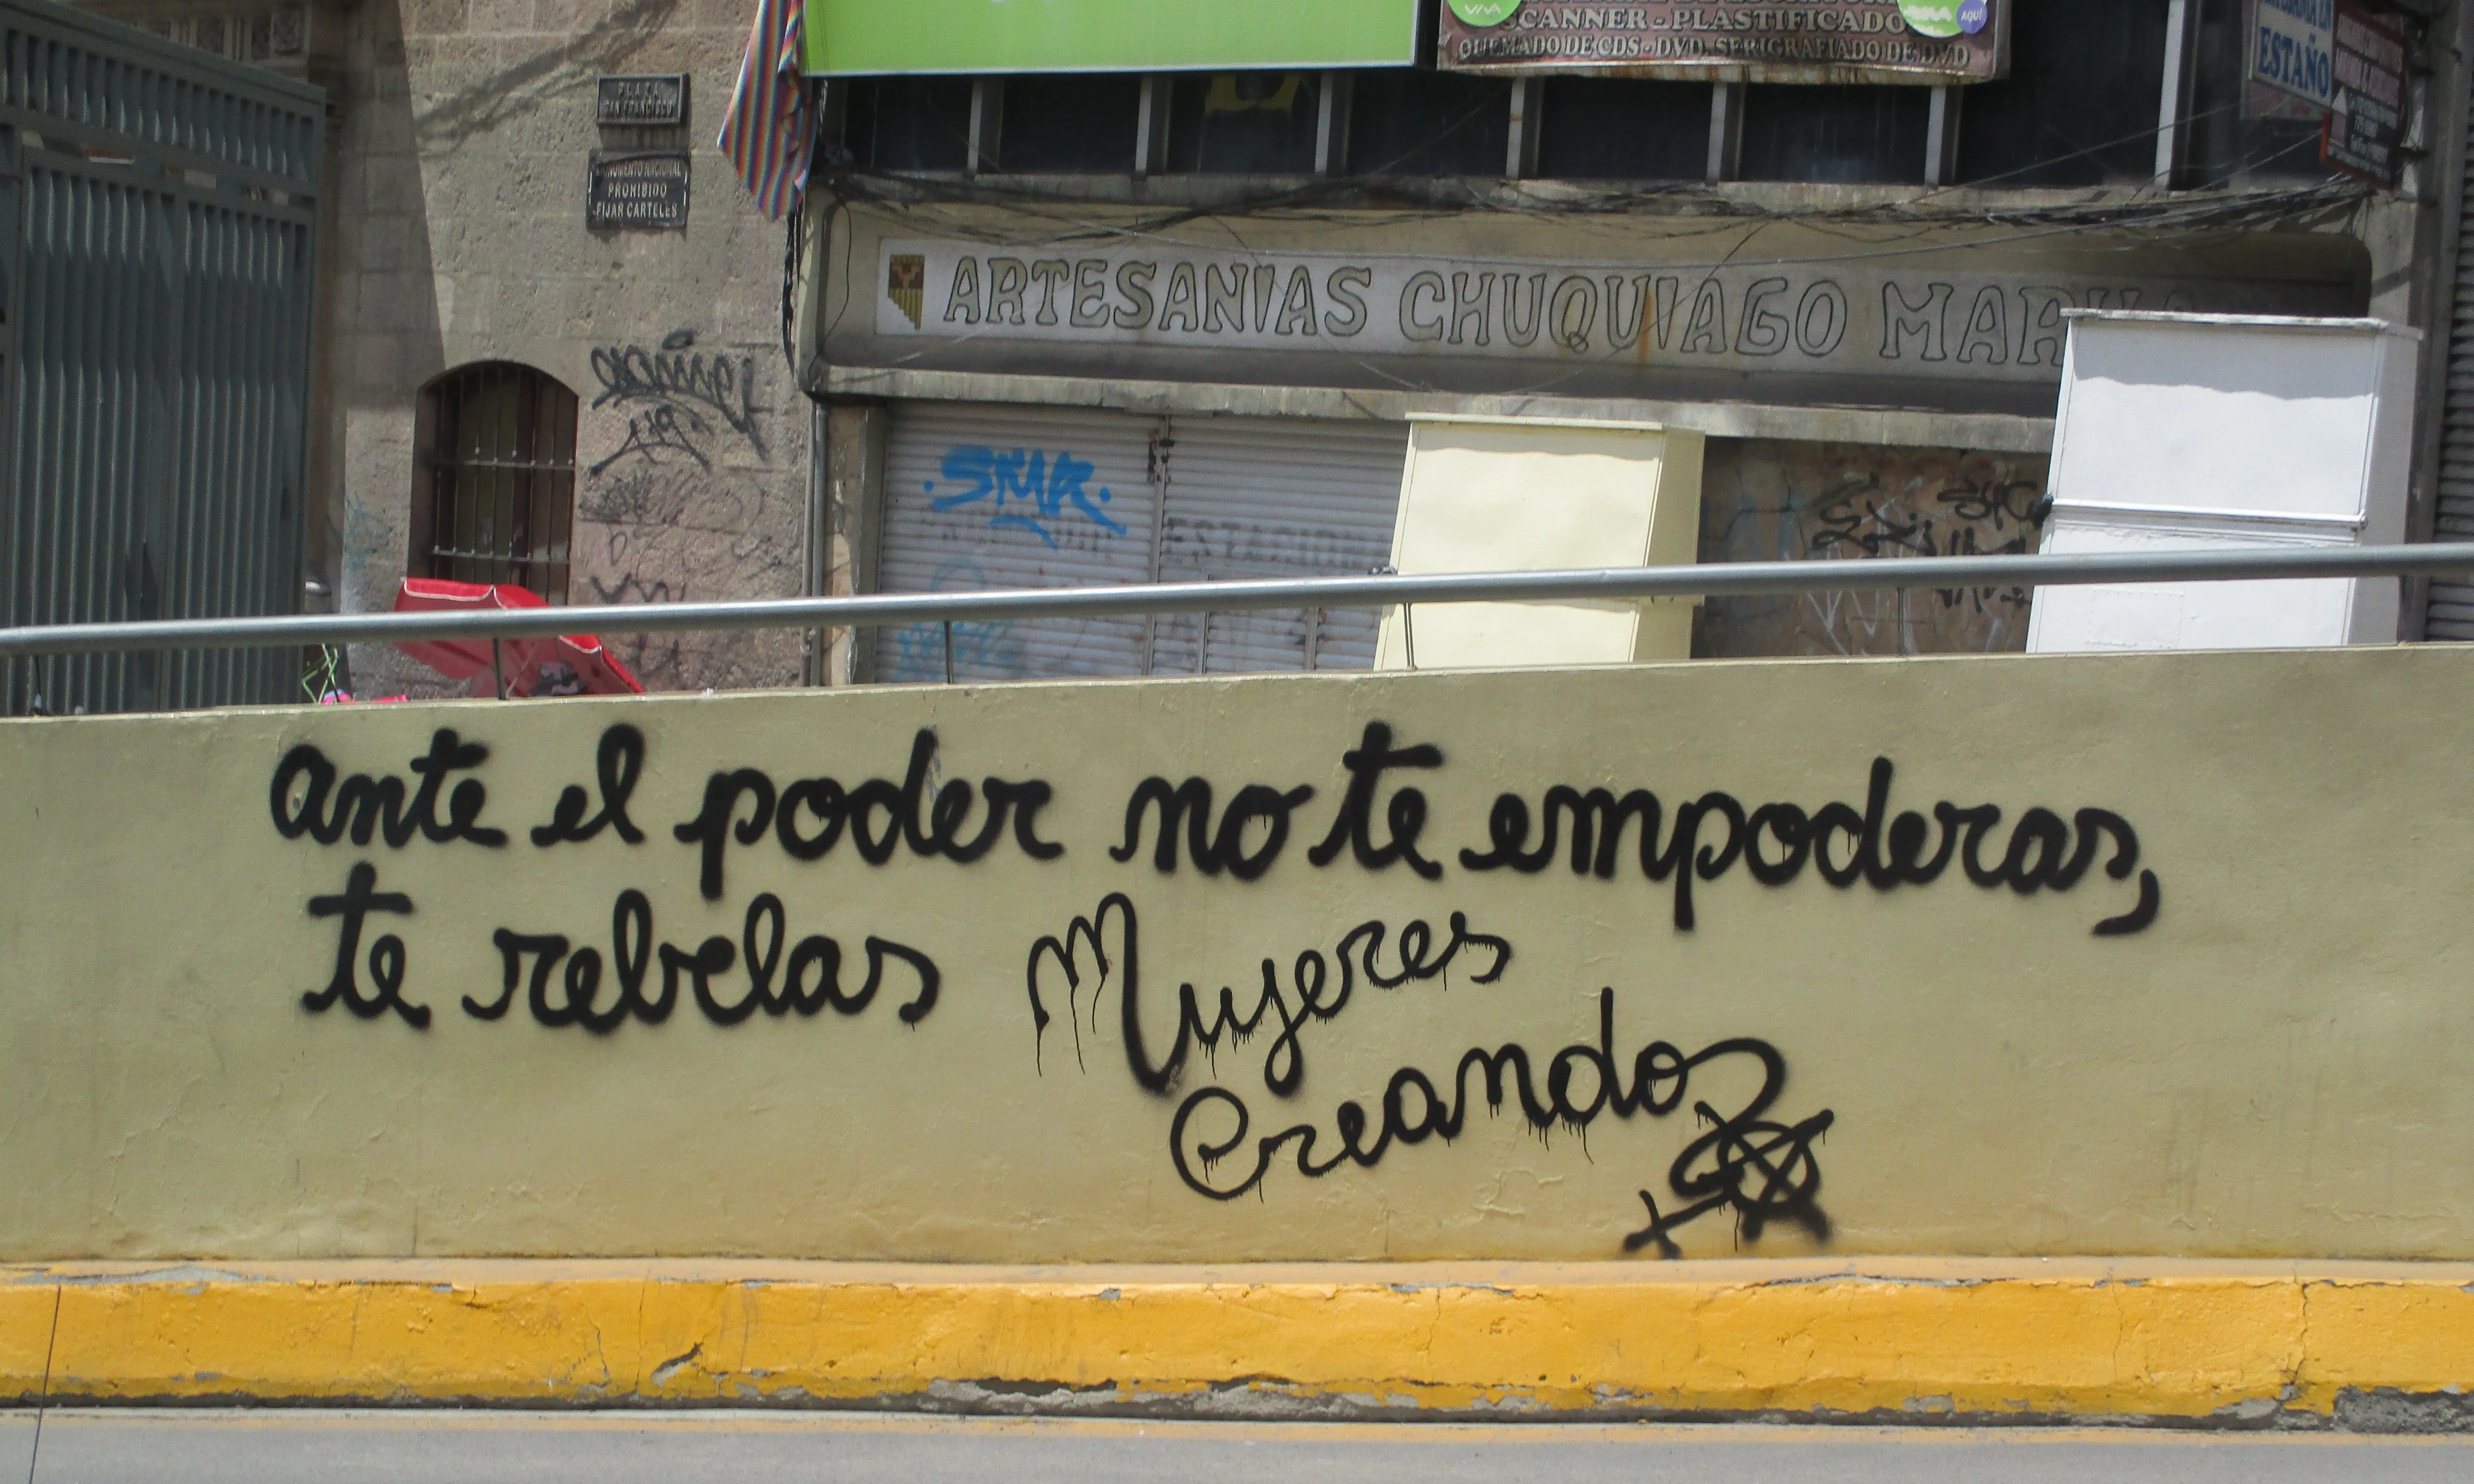 VIVA
SCANNER - PLASTIFICADO
QUEMADO DE CDS - DVD. SERIGRAFIADO DE DVD
AQUÍ
ESTAÑO
PLAZA
SAN FRANCISCO
MONUMENTO NACIONAL
PROHIBIDO
FIJAR CARTELES
ARTESANIAS CHUQUIAGO MARKA
SMR
ante el poder no te empoderas,
te rebelas
Mujeres
Creando